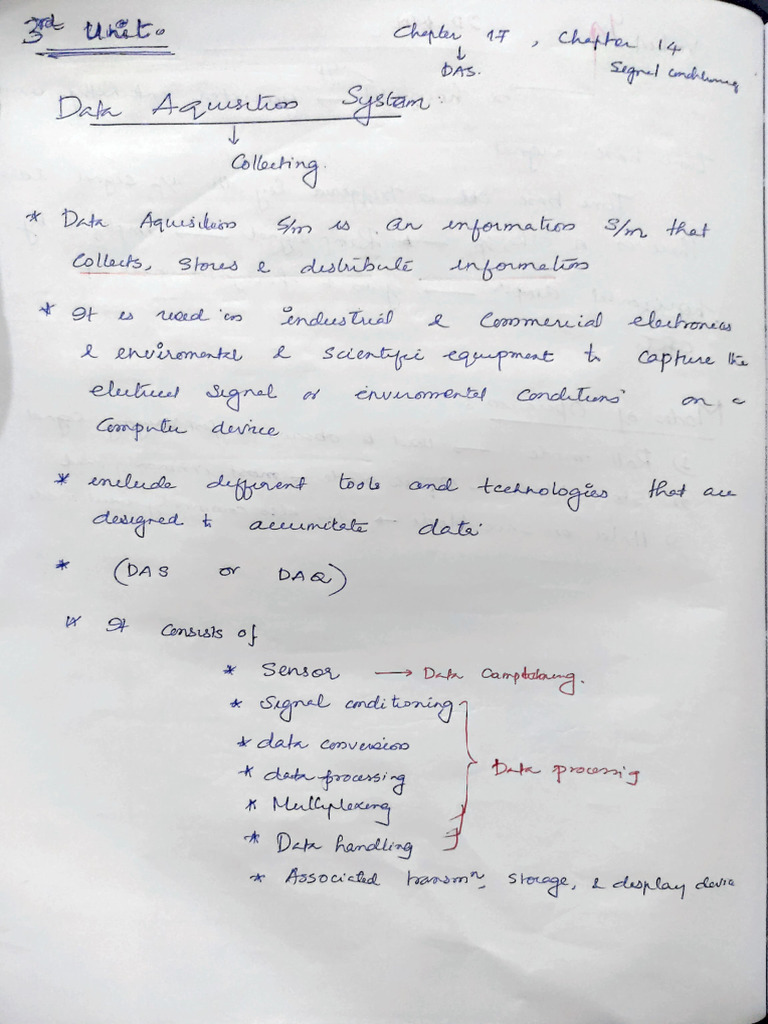 3rd Unit.
Chapter 17, Chapter 14
↓ DAS. Signal conditioning
Data Aquisition System
↓
Collecting.
* Data Aquisition S/m is an information S/m that
Collects, stores & distribute information
* It is used in industrial & Commercial electronics
& enviromental & scientific equipment to capture the
electrical signal or enviromental conditions on a
Computer device
* include different tools and technologies that are
designed to accumilate data.
* (DAS or DAQ)
* It consists of
* Sensor → Data
* Signal conditioning
* data conversion
* data processing } Data processig
* Multiplexing
* Data handling
* Associated transmn, storage, & display device